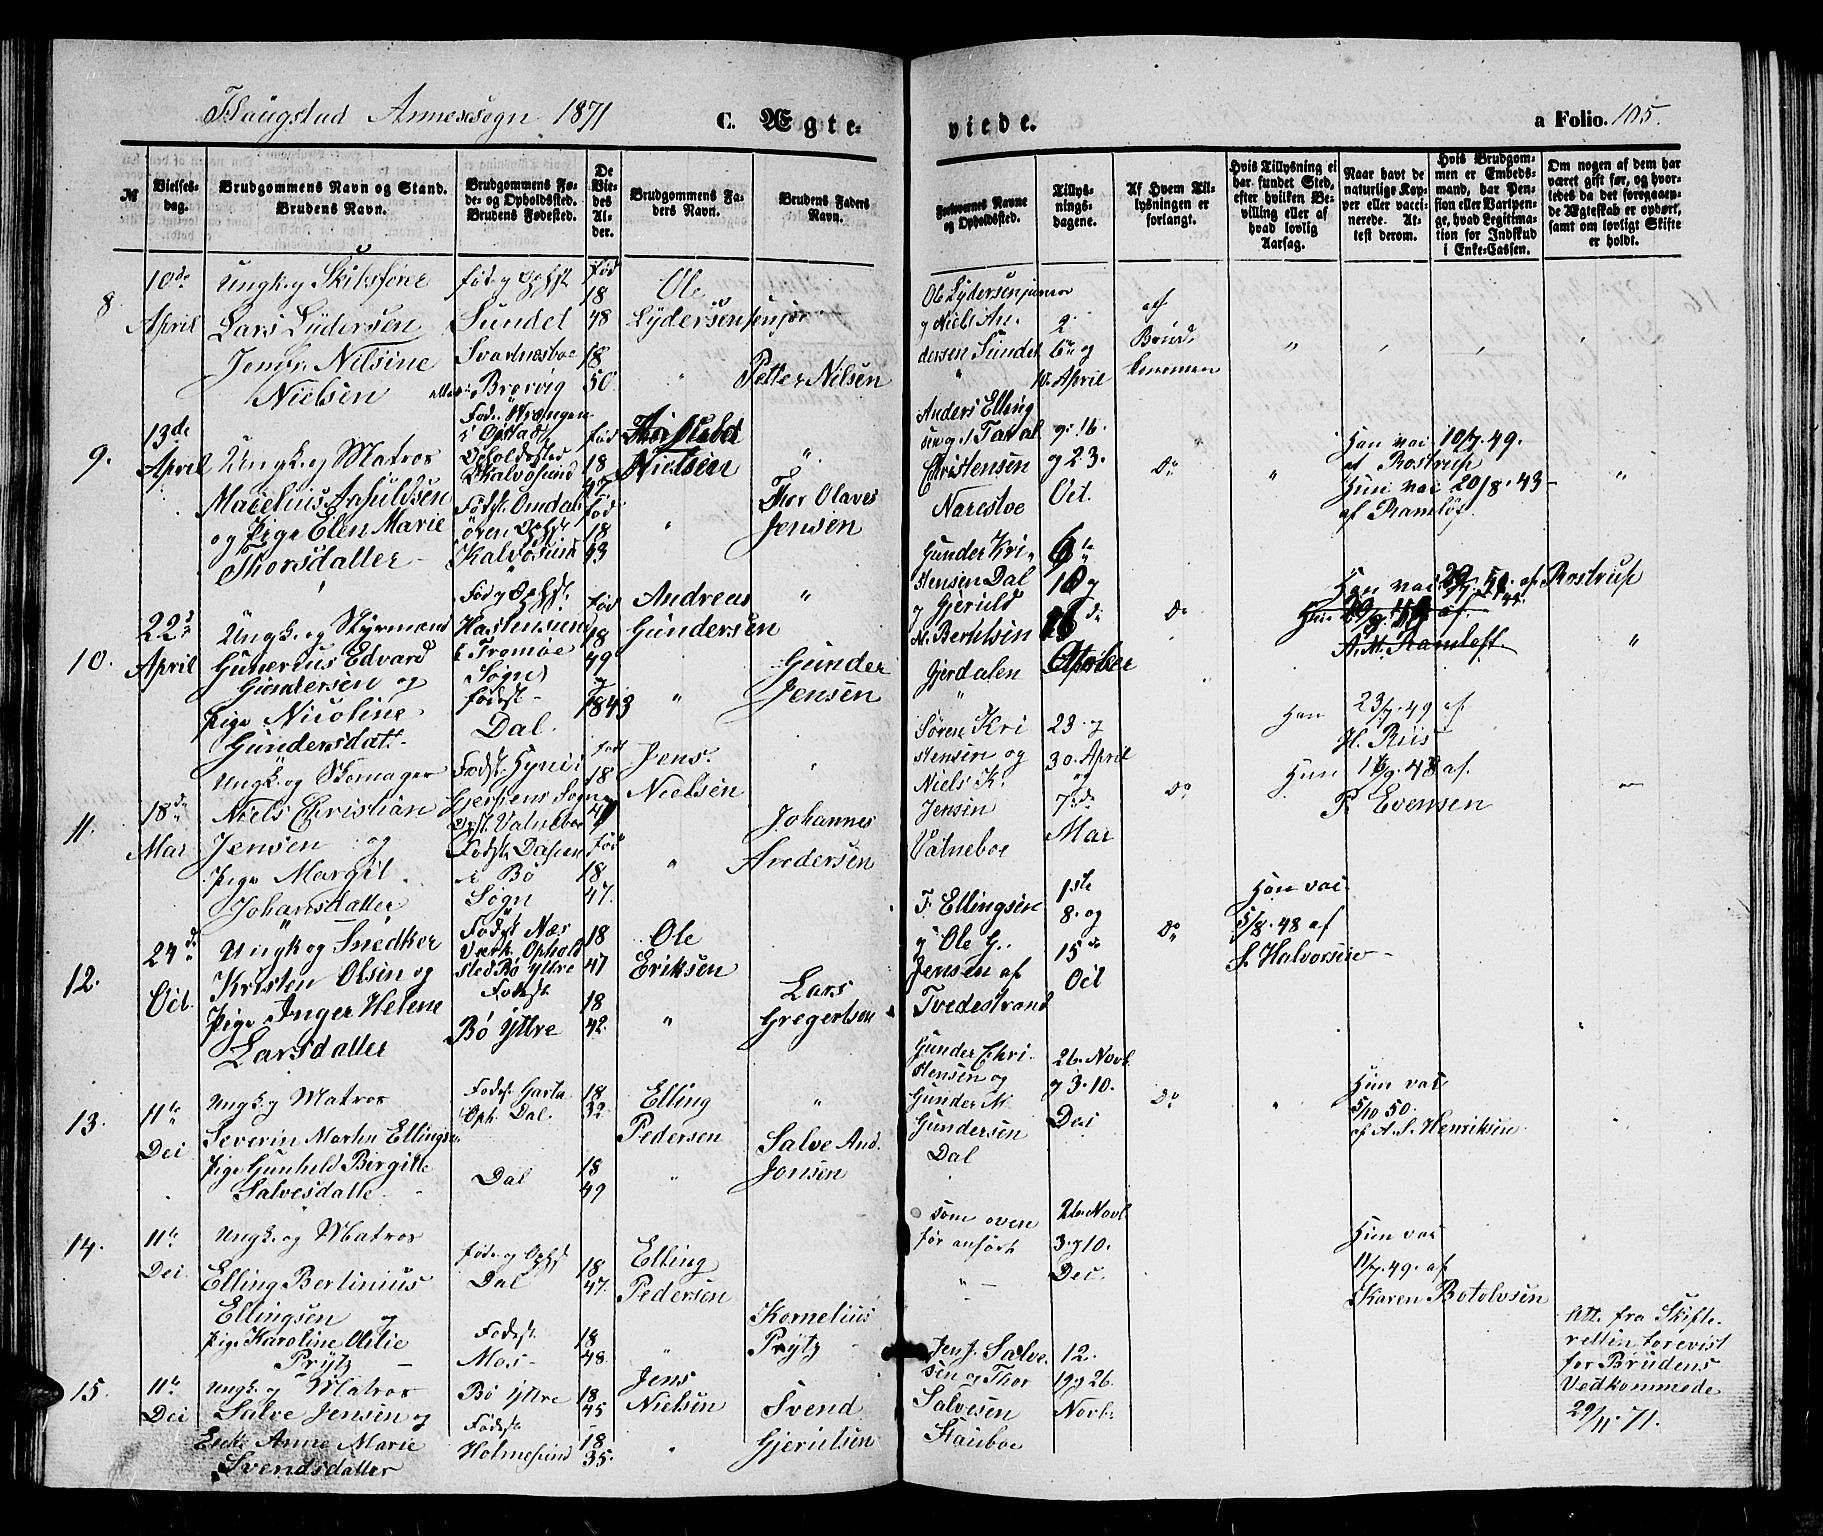 Flaugstad Annexsogn 1871
C. Ægte-
viede.
a Folio. 105.
№
Vielses-
dag.
Brudgommens Navn og Stand.
Brudens Navn.
Brudgommens Fø-
de- og Opholdssted.
Brudens Fødested.
De
Vie-
des
Al-
der.
Brudgommens Fa-
ders Navn.
Brudens Faders
Navn.
Forlovernes Navne
og Opholdssted.
Tillys-
nings-
dagene.
Af Hvem Til-
lysningen er
forlangt.
Hvis Tillysning ei
har fundet Sted,
efter hvilken Be-
villing eller af
hvad lovlig
Aarsag.
Naar havt de
naturlige Kop-
per eller vacci-
nerede. At-
test derom.
Hvis Brudgom-
men er Embeds-
mand, har Pen-
sion eller Vartpen-
ge, hvad Legitima-
tion for Indskud
i Enke-Cassen.
Om nogen af dem har
været gift før, og hvor-
ledes da det foregaaen-
de Ægteskab er ophørt,
samt om lovligt Skifte
er holdt.
8.
10de
April
Ungk. og Skibsfører
Lars Lydersen
Jomfr. Nilsine
Nielsen
Fød og Ophst
Sundet
Svartnæsboe
eller Brevig
Fød
18
48
18
50
Ole
Lydersen junior
"
Petter Nilsen
Ole Lydersen junior
og Niels An-
dersen Sundet
2.
6te og
10. April
af
Brud-
konemen
9.
13de
April
Ungk. og Matros
Marelius Asfuldsen
og Pige Elen Marie
Thorsdatter
i Opstad
Opholdssted
Kalvøsund
Fødst. Omdal
øren Ophst
Kalvøsund
Fød
18
47
Fød
18
43
Nielsen
"
Thor Olaves
Jensen
Anders Elling
sen og
Christensen
Narestoe
9. 16.
og 23.
Oct.
Do
Han vac 10/7. 49.
af Rostrup
Hun vac 20/8. 43
af Ramløf
10.
22d
April
Ungk. og Styrmand
Gunerius Edvard
Gundersen og
Pige Nicoline
Gundersdatt.
Fød og Ophst.
Hastensund
i Tromøe
Sogn
Fødst.
Dal.
Fød
18
49
1843
Andreas
Gundersen
"
Gunder
Jensen
Gunder Kri-
stensen Dal
og Gjeruld
N. Bertelsen
Gjerdalen
6te
10 og
16de
October
Do
Han vac af Rostrup
A. M. Ramløft
11.
18de
Mar
Ungk. og Skomager
Niels Christian
Jensen og
Pige Margit
Johansdatter
Gjerstens Sogn
Opst. Valneboe
i Bø
Sogn
Født
18
Fød
18
47.
Jens
Nielsen
"
Johannes
Avedersen
Søren Kri
stensen og
Niels K.
Jensen
Valneboe
23. og
30. April
og
7de
Mar
Do
Han 23/7. 49 af
H. Riis
Hun af
P. Evensen
12.
24de
Oct.
Ungk og Snedker
Kristen Olsen og
Pige Inger Helene
Larsdatter
Fødst Næs
Værk. Ophold
sted Bø Yttre
Fødst.
Bø Yttre
18
47
18
42.
Ole
Eriksen
"
Lars
Gregertsen
F. Ellingsen
og Ole G.
Jensen af
Tvedestrand
1ste
8. og
15de
Oct
Do
Han vac.
5/8. 48 af
S. Halvorsen
13.
11te
Dec
Ungk. og Matros
Severin Martin Ellingsen
Pige Gunheld Birgitte
Salvesdatte
Fødst. Garta
Oph. Dal.
Dal
18
32.
18
49
Elling
Pedersen
"
Salve And.
Jonsen
Gunder Chri-
stensen og
Gunder M
Gundersen
Dal
26. Novb.
og 3. 10.
Dec
Do
Hun vac
5/10 50.
af A. S. Henriksen
14.
11te
Dec.
Ungk. og Matros
Elling Bertinius
Ellingsen og
Pige Karoline Otilie
Prytz
Føde og Ophst
Dal
Fødst.
Mos-
18
47.
18
48.
Elling
Pedersen
Kornelius
Prytz
som oven
for anført
26. Novb
3. og 10.
Dec.
Hun vac
11/7. 49. af
Karen Botolvsen
15.
11te
Dec
Ungk. og Matros
Salve Jensen og
Enke Anne Marie
Svendsdatter
Bø Yttre
Fødst.
Holmesund
18
45
18
35.
Jens
Nielsen
"
Svend
Gjerulsen
Jens J. Salve-
sen og Thor
Salvesen
Stauboe
12.
19 og 26.
Novb.
Att. fra Skifte-
retten forevist
for Brudens
Vedkommede
29/11. 71.